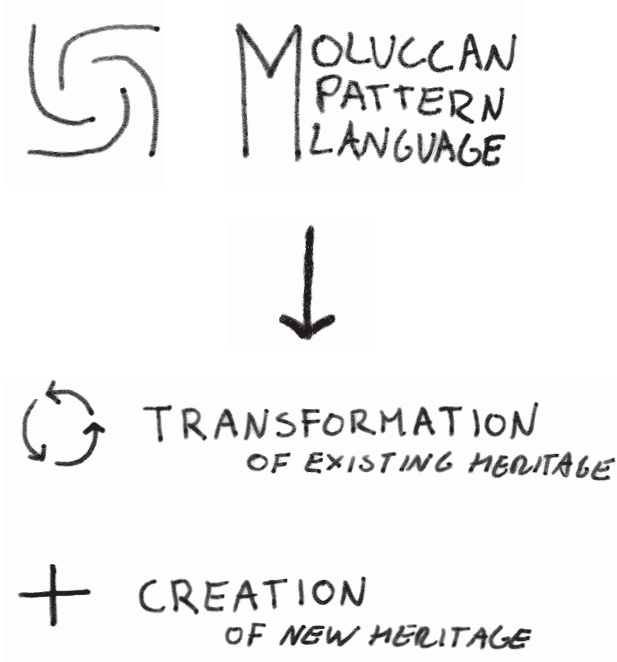 MOLUCCAN
PATTERN
LANGUAGE
TRANSFORMATION
OF EXISTING HERITAGE
CREATION
OF NEW HERITAGE